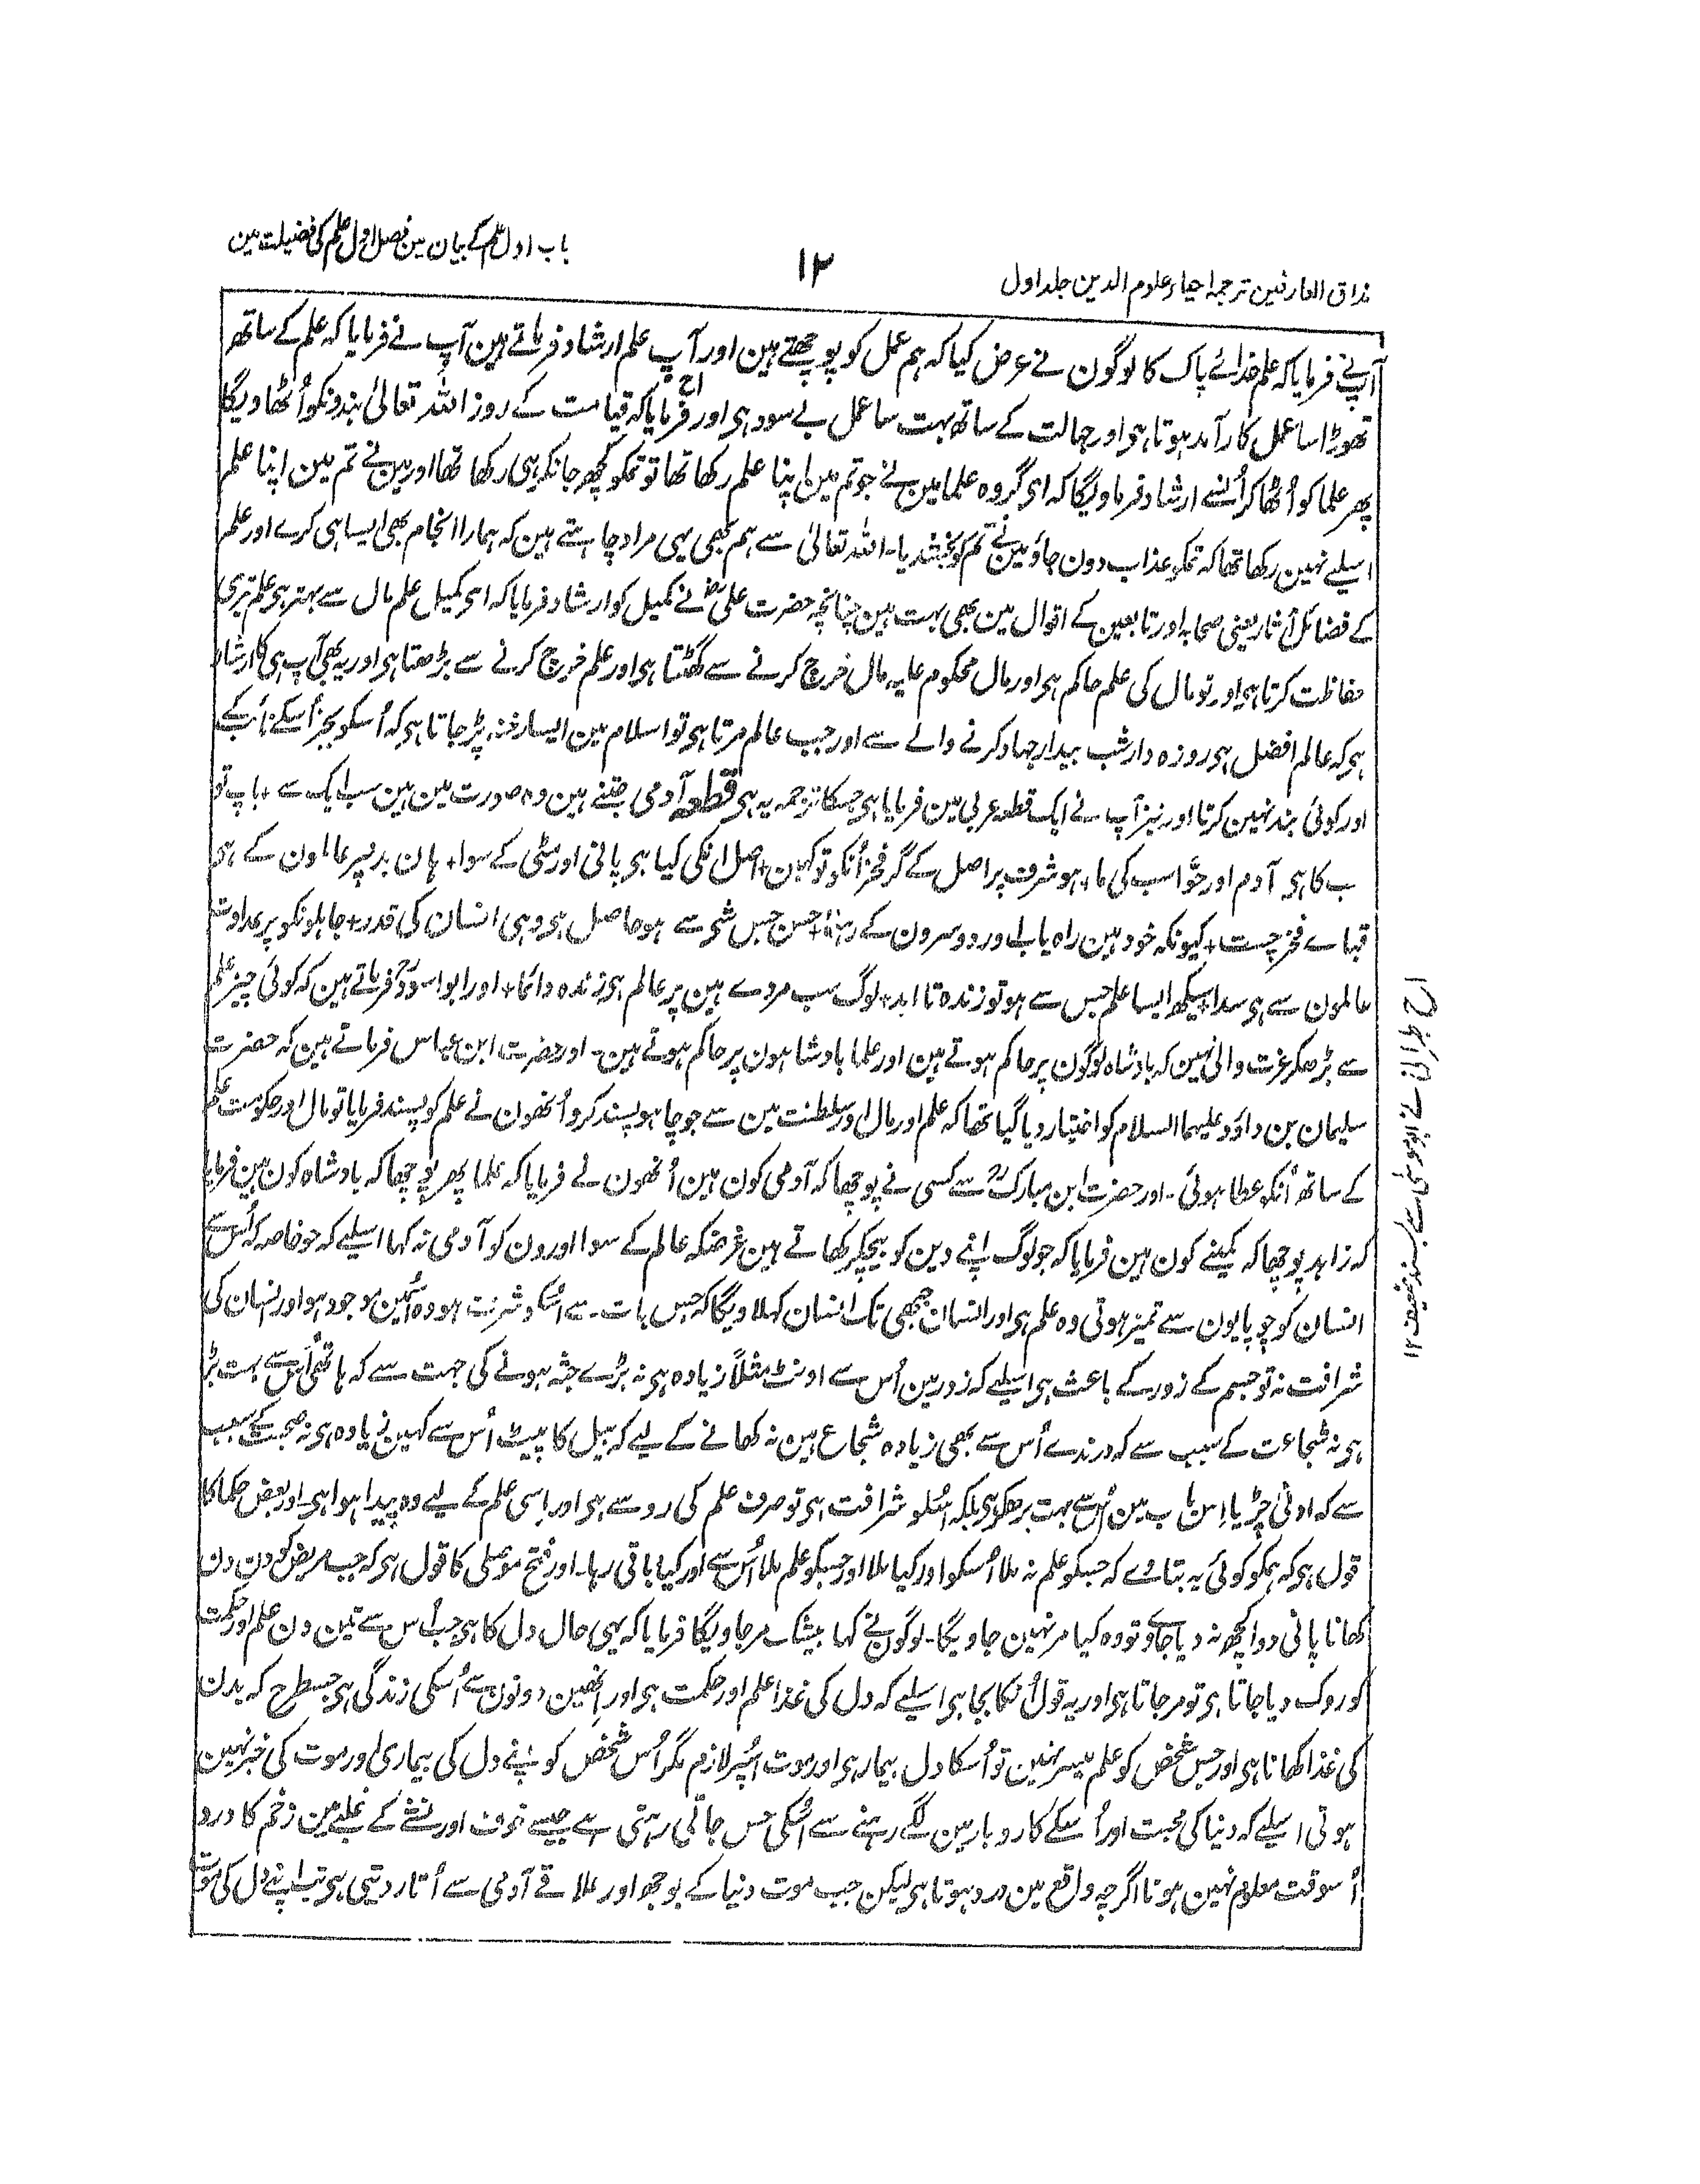 مذاق العارفین ترجمہ احیاء علوم الدین جلد اول
۱۲
باب اول علم کے بیان مین فصل اول علم کی فضیلت مین
آپنے فرمایا کہ علم خدائے پاک کا لوگون نے عرض کیا کہ ہم عمل کو پوچھتے ہین اور آپ علم ارشاد فرماتے ہین آپ نے فرمایا کہ علم کے ساتھ
تھوڑا سا عمل کارآمد ہوتا ہی اور جہالت کے ساتھ بہت سا عمل بے سود ہی اور فرمایا کہ قیامت کے روز اللہ تعالیٰ بندونکو اُٹھاویگا
پھر علما کو اُٹھا کر اُنسے ارشاد فرماویگا کہ ای گروہ علما مین نے جو تم مین اپنا علم رکھا تھا تو تمکو کچھ جانکر ہی رکھا تھا اور مین نے تم مین اپنا علم
اسلیے نہین رکھا تھا کہ تمکو عذاب دون جاؤ مین نے تم کو بخشدیا۔ اللہ تعالیٰ سے ہم بھی یہی مراد چاہتے ہین کہ ہمارا انجام بھی ایسا ہی کرے اور علم
کے فضائل آثار یعنی صحابہ اور تابعین کے اقوال مین بھی بہت ہین چنانچہ حضرت علیؓ نے کمیل کو ارشاد فرمایا کہ ای کمیل علم مال سے بہتر ہی علم تیری
حفاظت کرتا ہی اور تو مال کی علم حاکم ہی اور مال محکوم علیہ مال خرچ کرنے سے گھٹتا ہی اور علم خرچ کرنے سے بڑھتا ہی اور یہ بھی آپ ہی کا ارشاد
ہی کہ عالم افضل ہی روزہ دار شب بیدار جہاد کرنے والے سے اور جب عالم مرتا ہی تو اسلام مین ایسا رخنہ پڑ جاتا ہی کہ اُسکو بجز اُسکے نائب کے
اور کوئی بند نہین کرتا اور نیز آپ نے ایک قطعہ عربی مین فرمایا ہی جسکا ترجمہ یہ ہی قطعہ آدمی جتنے ہین وہ صورت مین ہین سب ایک سے + باپ تو
سب کا ہی آدم اور حوّا سب کی ما + ہو شرف پر اصل کے گر فخر اُنکو تو کہین + اصل انکی کیا ہی پانی اور مٹی کے سوا + ہان بدنپر عالمون کے ہی
قباے فخر چست + کیونکہ خود ہین راہ یاب اور دوسرون کے رہنما + حسن جس شی سے ہو حاصل ہی وہی انسان کی قدر + جاہلونکو پر عداوت
عالمون سے ہی سدا + سیکھ ایسا علم جس سے ہو تو زندہ تا ابد + لوگ سب مردے ہین پر عالم ہی زندہ دائما + اور ابو اسودؒ فرماتے ہین کہ کوئی چیز علم
سے بڑھکر عزت والی نہین کہ بادشاہ لوگون پر حاکم ہوتے ہین اور علما بادشاہون پر حاکم ہوتے ہین۔ اور حضرت ابن عباس فرماتے ہین کہ حضرت
سلیمان بن داؤد علیہما السلام کو اختیار دیا گیا تھا کہ علم اور مال اور سلطنت مین سے جو چاہو پسند کرو اُنھون نے علم کو پسند فرمایا تو مال اور حکومت علم
کے ساتھ اُنکو عطا ہوئی۔ اور حضرت ابن مبارکؒ سے کسی نے پوچھا کہ آدمی کون ہین اُنھون نے فرمایا کہ علما پھر پوچھا کہ بادشاہ کون ہین فرمایا
کہ زاہد پوچھا کہ کمینے کون ہین فرمایا کہ جو لوگ اپنے دین کو بیچکر کھاتے ہین غرضکہ عالم کے سوا اورون کو آدمی نہ کہا اسلیے کہ جو خاصہ کہ اُس سے
انسان کو چوپایون سے تمیز ہوتی وہ علم ہی اور انسان جبھی تک انسان کہلاویگا کہ جس بات سے اُسکو شرف ہو وہ اُسمین موجود ہو اور انسان کی
شرافت نہ تو جسم کے زور کے باعث ہی اسلیے کہ زور مین اُس سے اونٹ مثلاً زیادہ ہی نہ بڑے جثہ ہونے کی جہت سے کہ ہاتھی اُس سے بہت بڑا
ہی نہ شجاعت کے سبب سے کہ درندے اُس سے بھی زیادہ شجاع ہین نہ کھانے کے لیے کہ بیل کا پیٹ اُس سے کہین زیادہ ہی نہ صحبت کے سبب
سے کہ ادنیٰ چڑیا اس باب مین اُس سے بہت بڑھکر ہی بلکہ اُسکو شرافت ہی تو صرف علم کی رو سے ہی اور اسی علم کے لیے وہ پیدا ہوا ہی۔ اور بعض حکما کا
قول ہی کہ ہمکو کوئی یہ بتادے کہ جسکو علم نہ ملا اُسکو اور کیا ملا اور جسکو علم ملا اُس سے اور کیا باقی رہا۔ اور فتح موصلی کا قول ہی کہ جب مریض کو دن دن
کھانا پانی دوا کچھ نہ دیا جاوے تو وہ کیا مر نہین جاویگا۔ لوگون نے کہا بیشک مر جاویگا فرمایا کہ یہی حال دل کا ہی جب اُس سے تین دن علم اور حکمت
کو روک دیا جاتا ہی تو مر جاتا ہی اور یہ قول اُنکا بجا ہی اسلیے کہ دل کی غذا علم اور حکمت ہی اور انھین دونون سے اُسکی زندگی ہی جسطرح کہ بدن
کی غذا کھانا ہی اور جس شخص کو علم میسر نہین تو اُسکا دل بیمار ہی اور موت اُسپر لازم مگر اُس شخص کو اپنے دل کی بیماری اور موت کی خبر نہین
ہوتی اسلیے کہ دنیا کی محبت اور اُسکے کاروبار مین لگے رہنے سے اُسکی حس جاتی رہتی ہے جیسے خوف اور نشے کے غلبے مین زخم کا درد
اُسوقت معلوم نہین ہوتا اگرچہ واقع مین درد ہوتا ہی لیکن جب موت دنیا کے بوجھ اور علاقے آدمی سے اُتار دیتی ہی تب اپنے دل کی موت
اح طبرانی نے ابو موسیٰ سے بسند ضعیف ۱۲